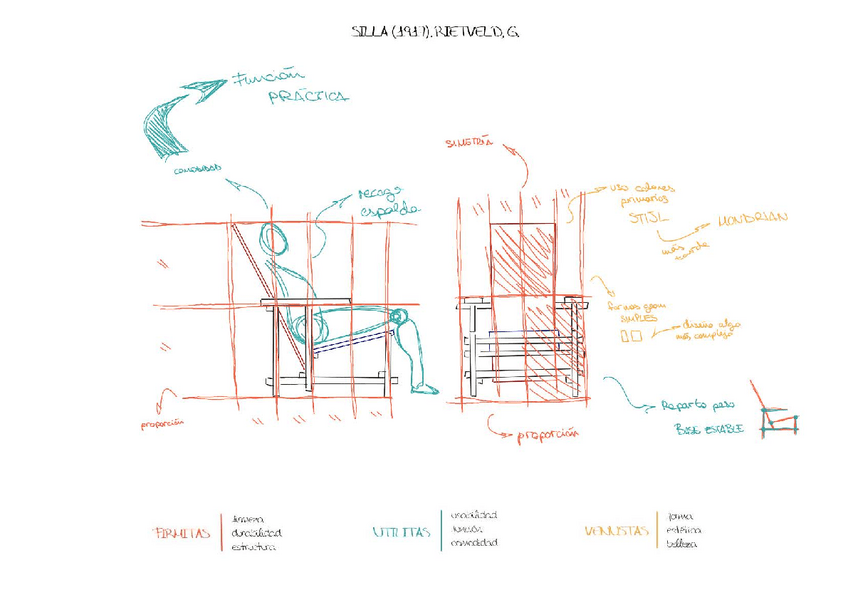 SILLA (1917). RIETVELD, G.
Función
PRÁCTICA
COMODIDAD
recoge
espalda
SIMETRÍA
uso colores
primarios
STIJL
MONDRIAN
más
tarde
formas geom
SIMPLES
diseño algo
más complejo
proporción
proporción
Reparto peso
BASE ESTABLE
FIRMITAS
firmeza
durabilidad
estructura
UTILITAS
usabilidad
función
comodidad
VENUSTAS
forma
estética
belleza